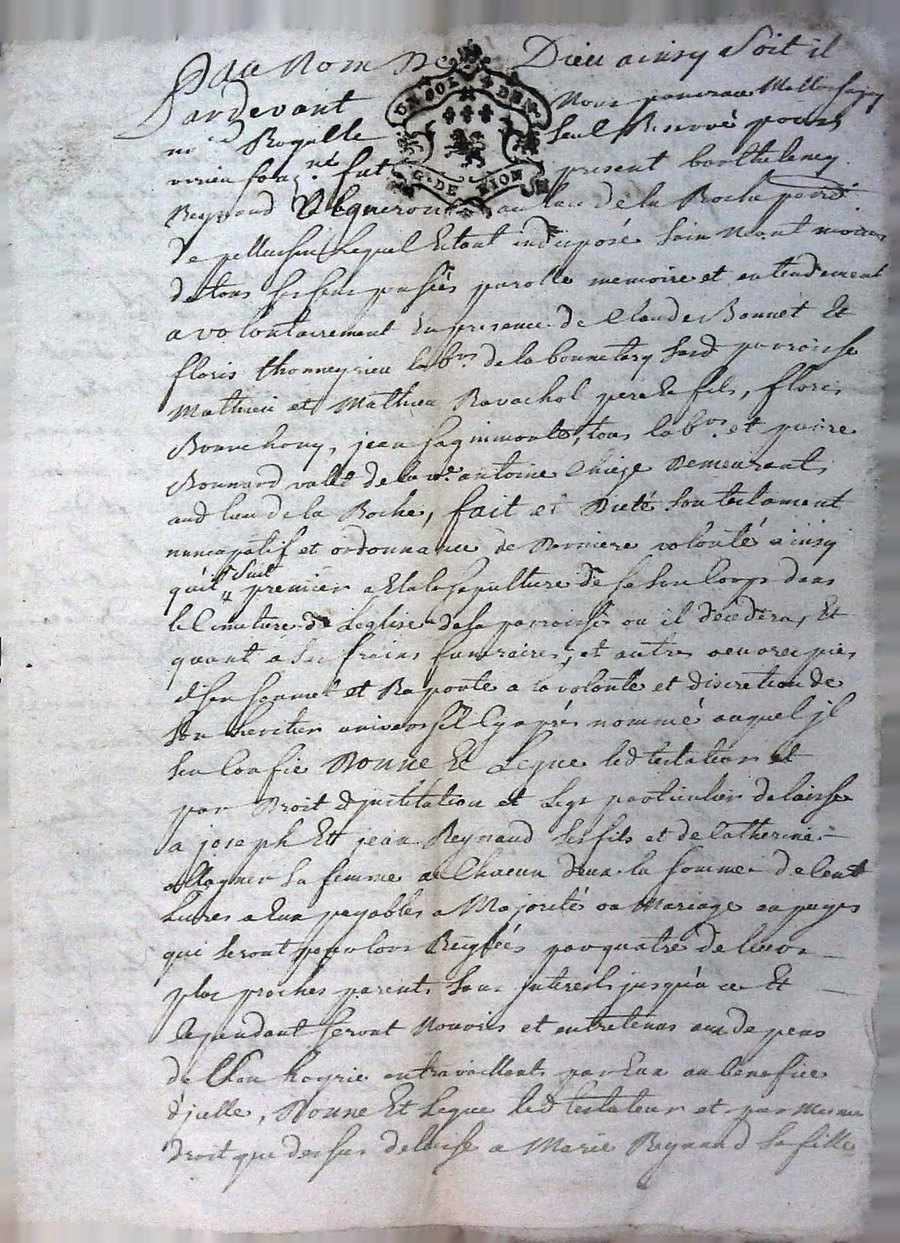 Au Nom De Dieu ainsy Soit il
Pardevant
UN SOL 4 DEN.
G. DE LION
Rogolle Seul Reservé pour
fut present barthelemy
Reynaud Vigneron au lieu de la Roche parr.
de pellussin Lequel Estant indisposé Sain Neant moins
de tous ses sens pensées parolle memoire et entendement
a volontairement En presence de Claude Bonnet Et
floris thonneyrieu lab.rs de la bonnetary Susd. parroisse
Mathieu et Mathieu Ravachol pere et fils, floris
jean tous lab.rs et
Bonnard vallet de la v.e antoine Chieze Demeurants
aud lieu de la Roche, fait et Dicté Son testament
nuncupatif et ordonnance de Derniere volonté ainsy
quil Suit
premier a Elu la sepulture de Son Corps dans
le Cimetiere de Leglise de la parroisse ou il décédera, Et
quant a Ses fraix funeraires, et autres oeuvres pies
il Sen Soumet et Raporte a la volonté et discretion de
Son heritier universel Cy apres nommé auquel jl
Sen Confie Donne Et Legue led testateur et
par Droit d'institution et Legs particulier delaisse
a joseph Et jean Reynaud Ses fils et de Catherine
Sa femme a Chacun deux la Somme de Cent
Livres a Eux payables a Majorité ou Mariage en payes
qui Seront pour lors Reiglées par quatre de leurs
plus proches parents Sans interests jusqu'a ce Et
Cependant Seront Nouris et entretenus aux depens
de Son hoyrie en travaillant par Eux au benefice
d'jcelle, Donne Et Legue led testateur et par Mesme
droit que dessus delaisse a Marie Reynaud Sa fille